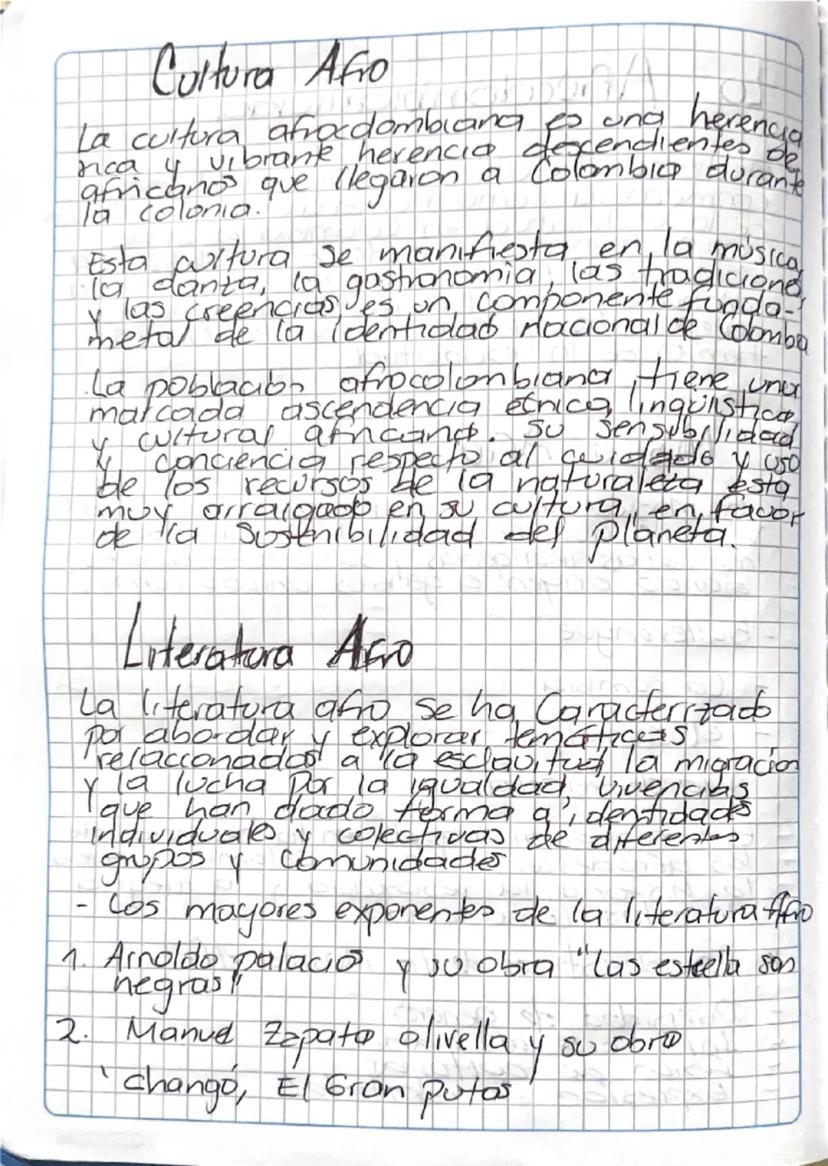 Cultura Afro
La cultura afrocolombiana es una herencia
rica y vibrante herencia descendientes de
africanos que llegaron a Colombia durante
la colonia.
Esta cultura se manifiesta en la música,
la danza, la gastronomía, las tradiciones
y las creencias es un componente funda-
metal de la identidad nacional de Colombia
La población afrocolombiana, tiene una
marcada ascendencia étnica, lingüística
y cultural africana. Su sensibilidad
y conciencia respecto al cuidado y uso
de los recursos de la naturaleza esta
muy arraigado en su cultura, en favor
de la sostenibilidad del planeta.
Literatura Afro
La literatura afro se ha Caracterizado
por abordar y explorar temáticas
relaccionados a la esclavitud, la migración
y la lucha por la igualdad, vivencias
que han dado forma a identidades
individuales y colectivas de diferentes
grupos y comunidades
- Los mayores exponentes de la literatura Afro
1. Arnoldo palacio y su obra "Las estrella son
negras"
2. Manuel Zapato Olivella y su obra
' Changó, El Gran putas